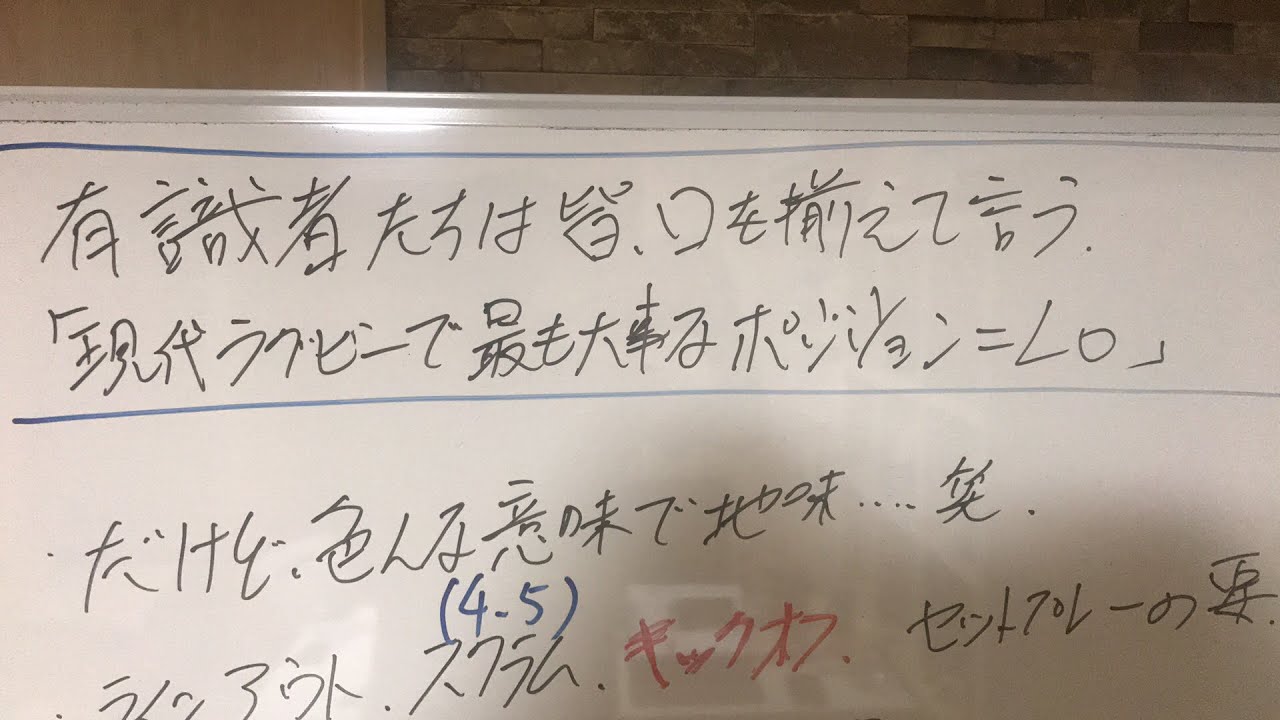 有識者たちは皆、口を揃えて言う.
「現代ラグビーで最も大事なポジション=LO」
・だけど、色んな意味で地味....笑.
(4-5)
・ラインアウト.スクラム.キックオフ. セットプレーの要.